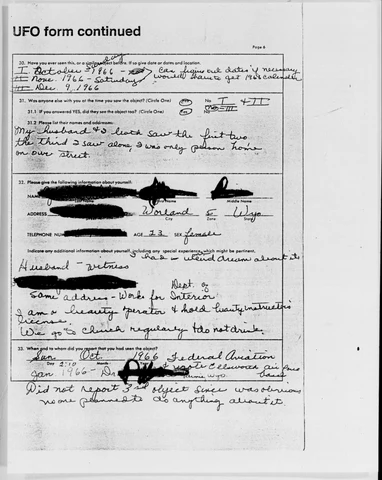 UFO form continued
Page 6
30. Have you ever seen, this, or a similar object before. If so give date or dates and location.
I. October 1966 - Sunday Can figure out dates if necessary
II Nov. 1966 - Saturday would have to get 1966 calendar
III Dec. 9, 1966
31. Was anyone else with you at the time you saw the object? (Circle One) Yes No I + II
31.1 If you answered YES, did they see the object too? (Circle One) Yes No III
31.2 Please list their names and addresses:
My husband & I both saw the first two
the third I saw alone, I was only person home
on our street.
32. Please give the following information about yourself:
NAME
Middle Name
ADDRESS Worland Wyo
City State
TELEPHONE NUMBER AGE 23 SEX female
Indicate any additional information about yourself, including any special experience, which might be pertinent.
I had weird dream about it
Husband - witness
Dept. of
Same address - Work for Interior
I am a beauty operator & hold beauty instructors
license.
We go to church regularly & do not drink.
33. When and to whom did you report that you had seen the object?
Sun Oct 1966 Federal Aviation
Day
Jan 1966 - wrote Ellsworth air force
base
Did not report 3rd object since was obvious
no one planned to do anything about it.